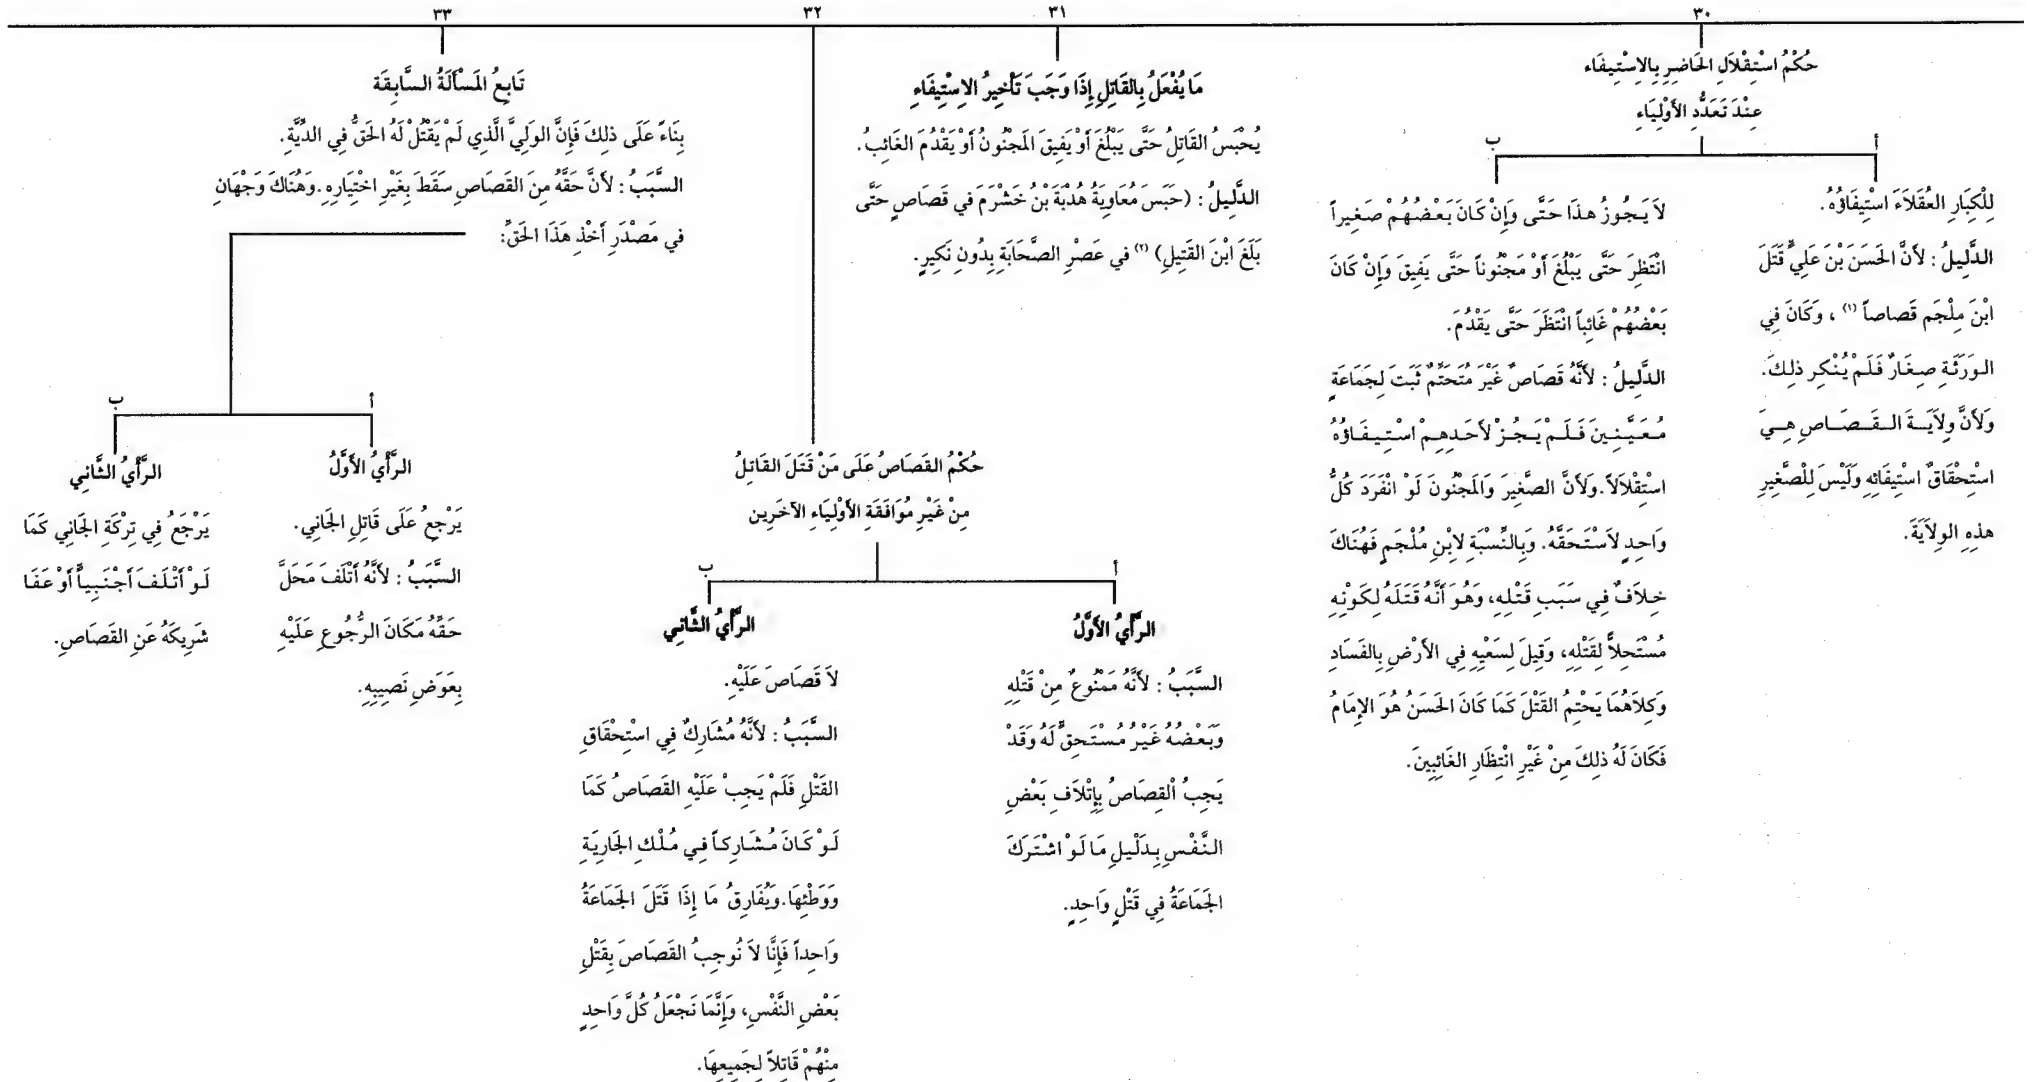 ٣٠
حُكْمُ اسْتِقْلَالِ الحَاضِرِ بِالاسْتِيفَاء
عِنْدَ تَعَدُّدِ الأَوْلِيَاءِ
أ
لِلْكِبَارِ العُقَلَاءَ اسْتِيفَاؤُهُ.
الدَّلِيلُ : لأَنَّ الحَسَنَ بْنَ عَلِيٍّ قَتَلَ
ابْنَ مِلْجَم قَصاصاً (١) ، وَكَانَ فِي
الوَرَثَةِ صِغَارٌ فَلَمْ يُنْكِر ذلِكَ.
وَلأَنَّ وِلاَيَةَ القَصَاصِ هِيَ
اسْتِحْقَاقٌ اسْتِيفَائِهِ وَلَيْسَ لِلْصَّغِيرِ
هذِهِ الوِلاَيَةَ.
ب
لاَ يَجُوزُ هذَا حَتَّى وَإِنْ كَانَ بَعْضُهُمْ صَغِيراً
انْتَظِرَ حَتَّى يَبْلُغَ أَوْ مَجْنُوناً حَتَّى يَفِيقَ وَإِنْ كَانَ
بَعْضُهُمْ غَائِباً انْتَظَرَ حَتَّى يَقْدُمَ.
الدَّلِيلُ : لأَنَّهُ قَصَاصٌ غَيْرَ مُتَحَتِّمٌ ثَبَتَ لِجَمَاعَةٍ
مُعَيَّنِينَ فَلَمْ يَجُزْ لأَحَدِهِمْ اسْتِيفَاؤُهُ
اسْتِقْلاَلاً. وَلأَنَّ الصَّغِيرَ وَالمَجْنُونَ لَوْ انْفَرَدَ كُلُّ
وَاحِدٍ لاَسْتَحَقَّهُ. وَبِالنِّسْبَةِ لاِبْنِ مُلْجَمٍ فَهُنَاكَ
خِلاَفٌ فِي سَبَبِ قَتْلِهِ، وَهُوَ أَنَّهُ قَتَلَهُ لِكَوْنِهِ
مُسْتَحِلاًّ لِقَتْلِهِ، وَقِيلَ لِسَعْيِهِ فِي الأَرْضِ بِالفَسَادِ
وَكِلاَهُمَا يَحْتِمُ القَتْلَ كَمَا كَانَ الحَسَنُ هُوَ الإِمَامُ
فَكَانَ لَهُ ذلِكَ مِنْ غَيْرِ انْتِظَارِ الغَائِبِينَ.
٣١
مَا يُفْعَلُ بِالقَاتِلِ إِذَا وَجَبَ تَأْخِيرُ الاسْتِيفَاءِ
يُحْبَسُ القَاتِلُ حَتَّى يَبْلُغَ أَوْ يَفِيقَ المَجْنُونُ أَوْ يَقْدُمَ الغَائِبُ.
الدَّلِيلُ : (حَبَسَ مُعَاوِيَةُ هُدْبَةَ بْنُ خَشْرَمَ في قَصَاصٍ حَتَّى
بَلَغَ ابْنَ القَتِيلِ) (٢) في عَصْرِ الصَّحَابَةِ بِدُونِ نَكِيرٍ.
٣٢
حُكْمُ القَصَاصُ عَلَى مَنْ قَتَلَ القَاتِلُ
مِنْ غَيْرِ مُوَافَقَةِ الأَوْلِيَاءِ الآخَرِين
أ
الرَّأْيُ الأَوَّلُ
السَّبَبُ : لأَنَّهُ مَمْنُوعٌ مِنْ قَتْلِهِ
وَبَعْضُهُ غَيْرُ مُسْتَحِقٍّ لَهُ وَقَدْ
يَجِبُ القِصَاصُ بِإِتْلاَفِ بَعْضِ
النَّفْسِ بِدَلْيلِ مَا لَوْ اشْتَرَكَ
الجَمَاعَةُ فِي قَتْلِ وَاحِدٍ.
ب
الرَّأْيُ الثَّانِي
لاَ قَصَاصَ عَلَيْهِ.
السَّبَبُ : لأَنَّهُ مُشَارِكٌ فِي اسْتِحْقَاقِ
القَتْلِ فَلَمْ يَجِبْ عَلَيْهِ القَصَاصُ كَمَا
لَوْ كَانَ مُشَارِكاً فِي مُلْكِ الجَارِيَةِ
وَوَطْئِهَا. وَيُفَارِقُ مَا إِذَا قَتَلَ الجَمَاعَةُ
وَاحِداً فَإِنَّا لاَ نُوجِبُ القَصَاصَ بِقَتْلِ
بَعْضِ النَّفْسِ، وَإِنَّمَا نَجْعَلُ كُلَّ وَاحِدٍ
مِنْهُمْ قَاتِلاً لِجَمِيعِهَا.
٣٣
تَابِعُ المَسْأَلَةُ السَّابِقَة
بِنَاءً عَلَى ذلِكَ فَإِنَّ الوَلِيَّ الَّذِي لَمْ يَقْتُلْ لَهُ الحَقُّ فِي الدِّيَّةِ.
السَّبَبُ : لأَنَّ حَقَّهُ مِنَ القَصَاصِ سَقَطَ بِغَيْرِ اخْتِيَارِهِ. وَهُنَاكَ وَجْهَانِ
في مَصْدَرِ أَخْذِ هَذَا الحَقِّ:
أ
الرَّأْيُ الأَوَّلُ
يَرْجِعُ عَلَى قَاتِلِ الجَانِي.
السَّبَبُ : لأَنَّهُ أَتْلَفَ مَحَلَّ
حَقِّهُ مَكَانَ الرُّجُوعِ عَلَيْهِ
بِعَوَضِ نَصِيبِهِ.
ب
الرَّأْيُ الثَّانِي
يَرْجَعُ فِي تِرْكَةِ الجَانِي كَمَا
لَوْ أَتْلَفَ أَجْنَبِياًّ أَوْ عَفَا
شَرِيكَهُ عَنِ القَصَاصِ.